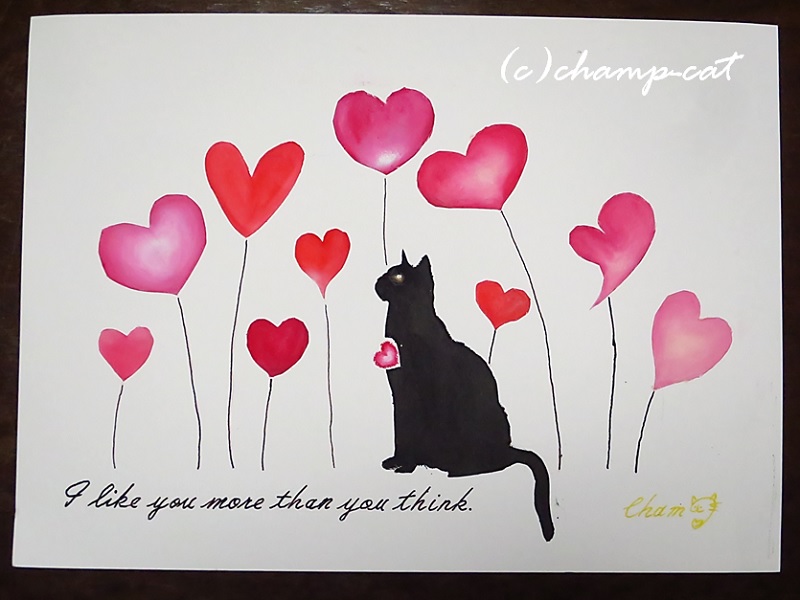 (c)champ-cat
I like you more than you think.
Cham